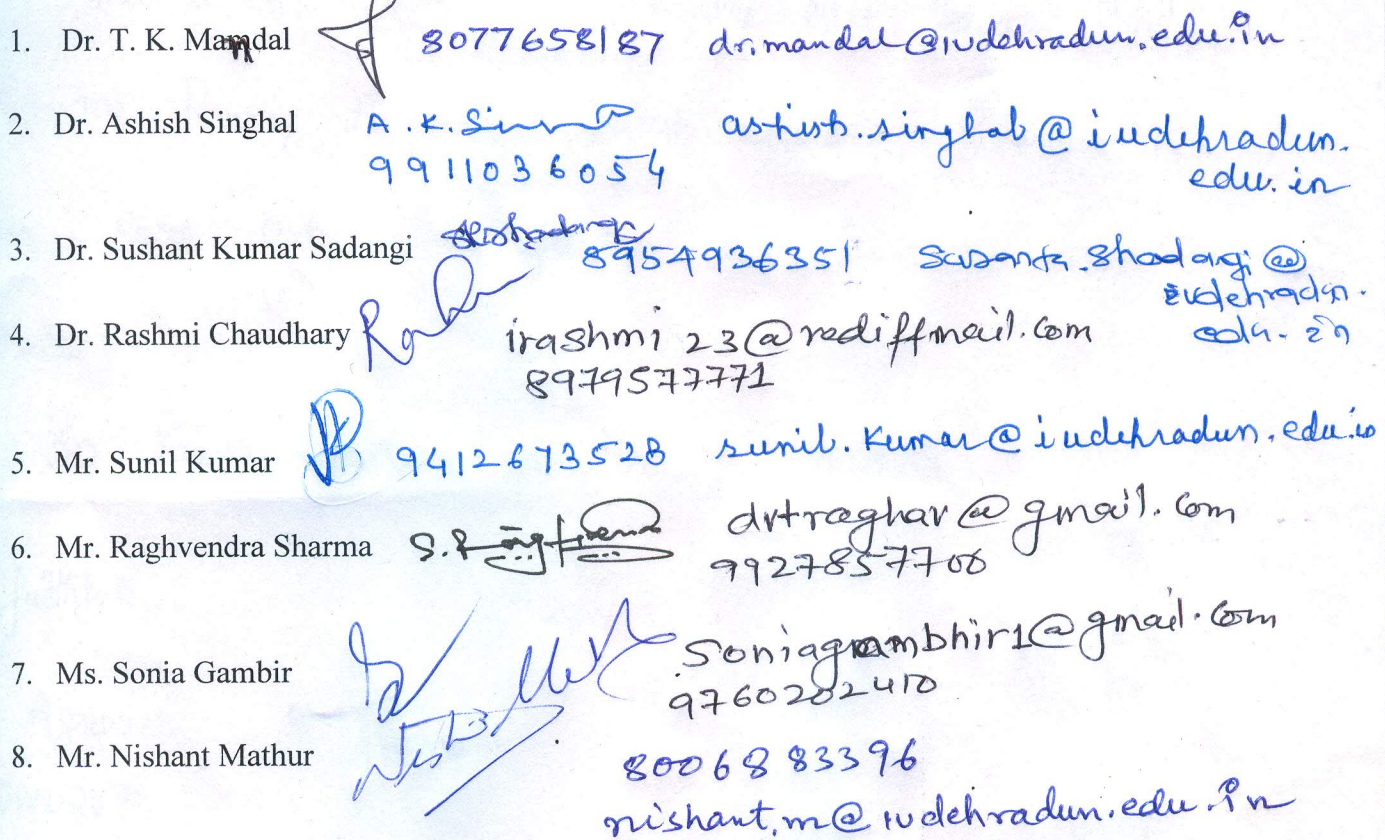 1. Dr. T. K. Mandal 8077658187 dr.mandal@iudehradun.edu.in
2. Dr. Ashish Singhal A.K. ashish.singhal@iudehradun.
9911036054 edu.in
3. Dr. Sushant Kumar Sadangi 8954936351 Susanta.Shadangi@
iudehradun.
edu.in
4. Dr. Rashmi Chaudhary irashmi23@rediffmail.com
8979577771
5. Mr. Sunil Kumar 9412673528 sunil.Kumar@iudehradun.edu.in
6. Mr. Raghvendra Sharma drtraghav@gmail.com
9927857706
7. Ms. Sonia Gambir Soniagambhir1@gmail.com
9760202410
8. Mr. Nishant Mathur 8006883396
nishant.m@iudehradun.edu.in